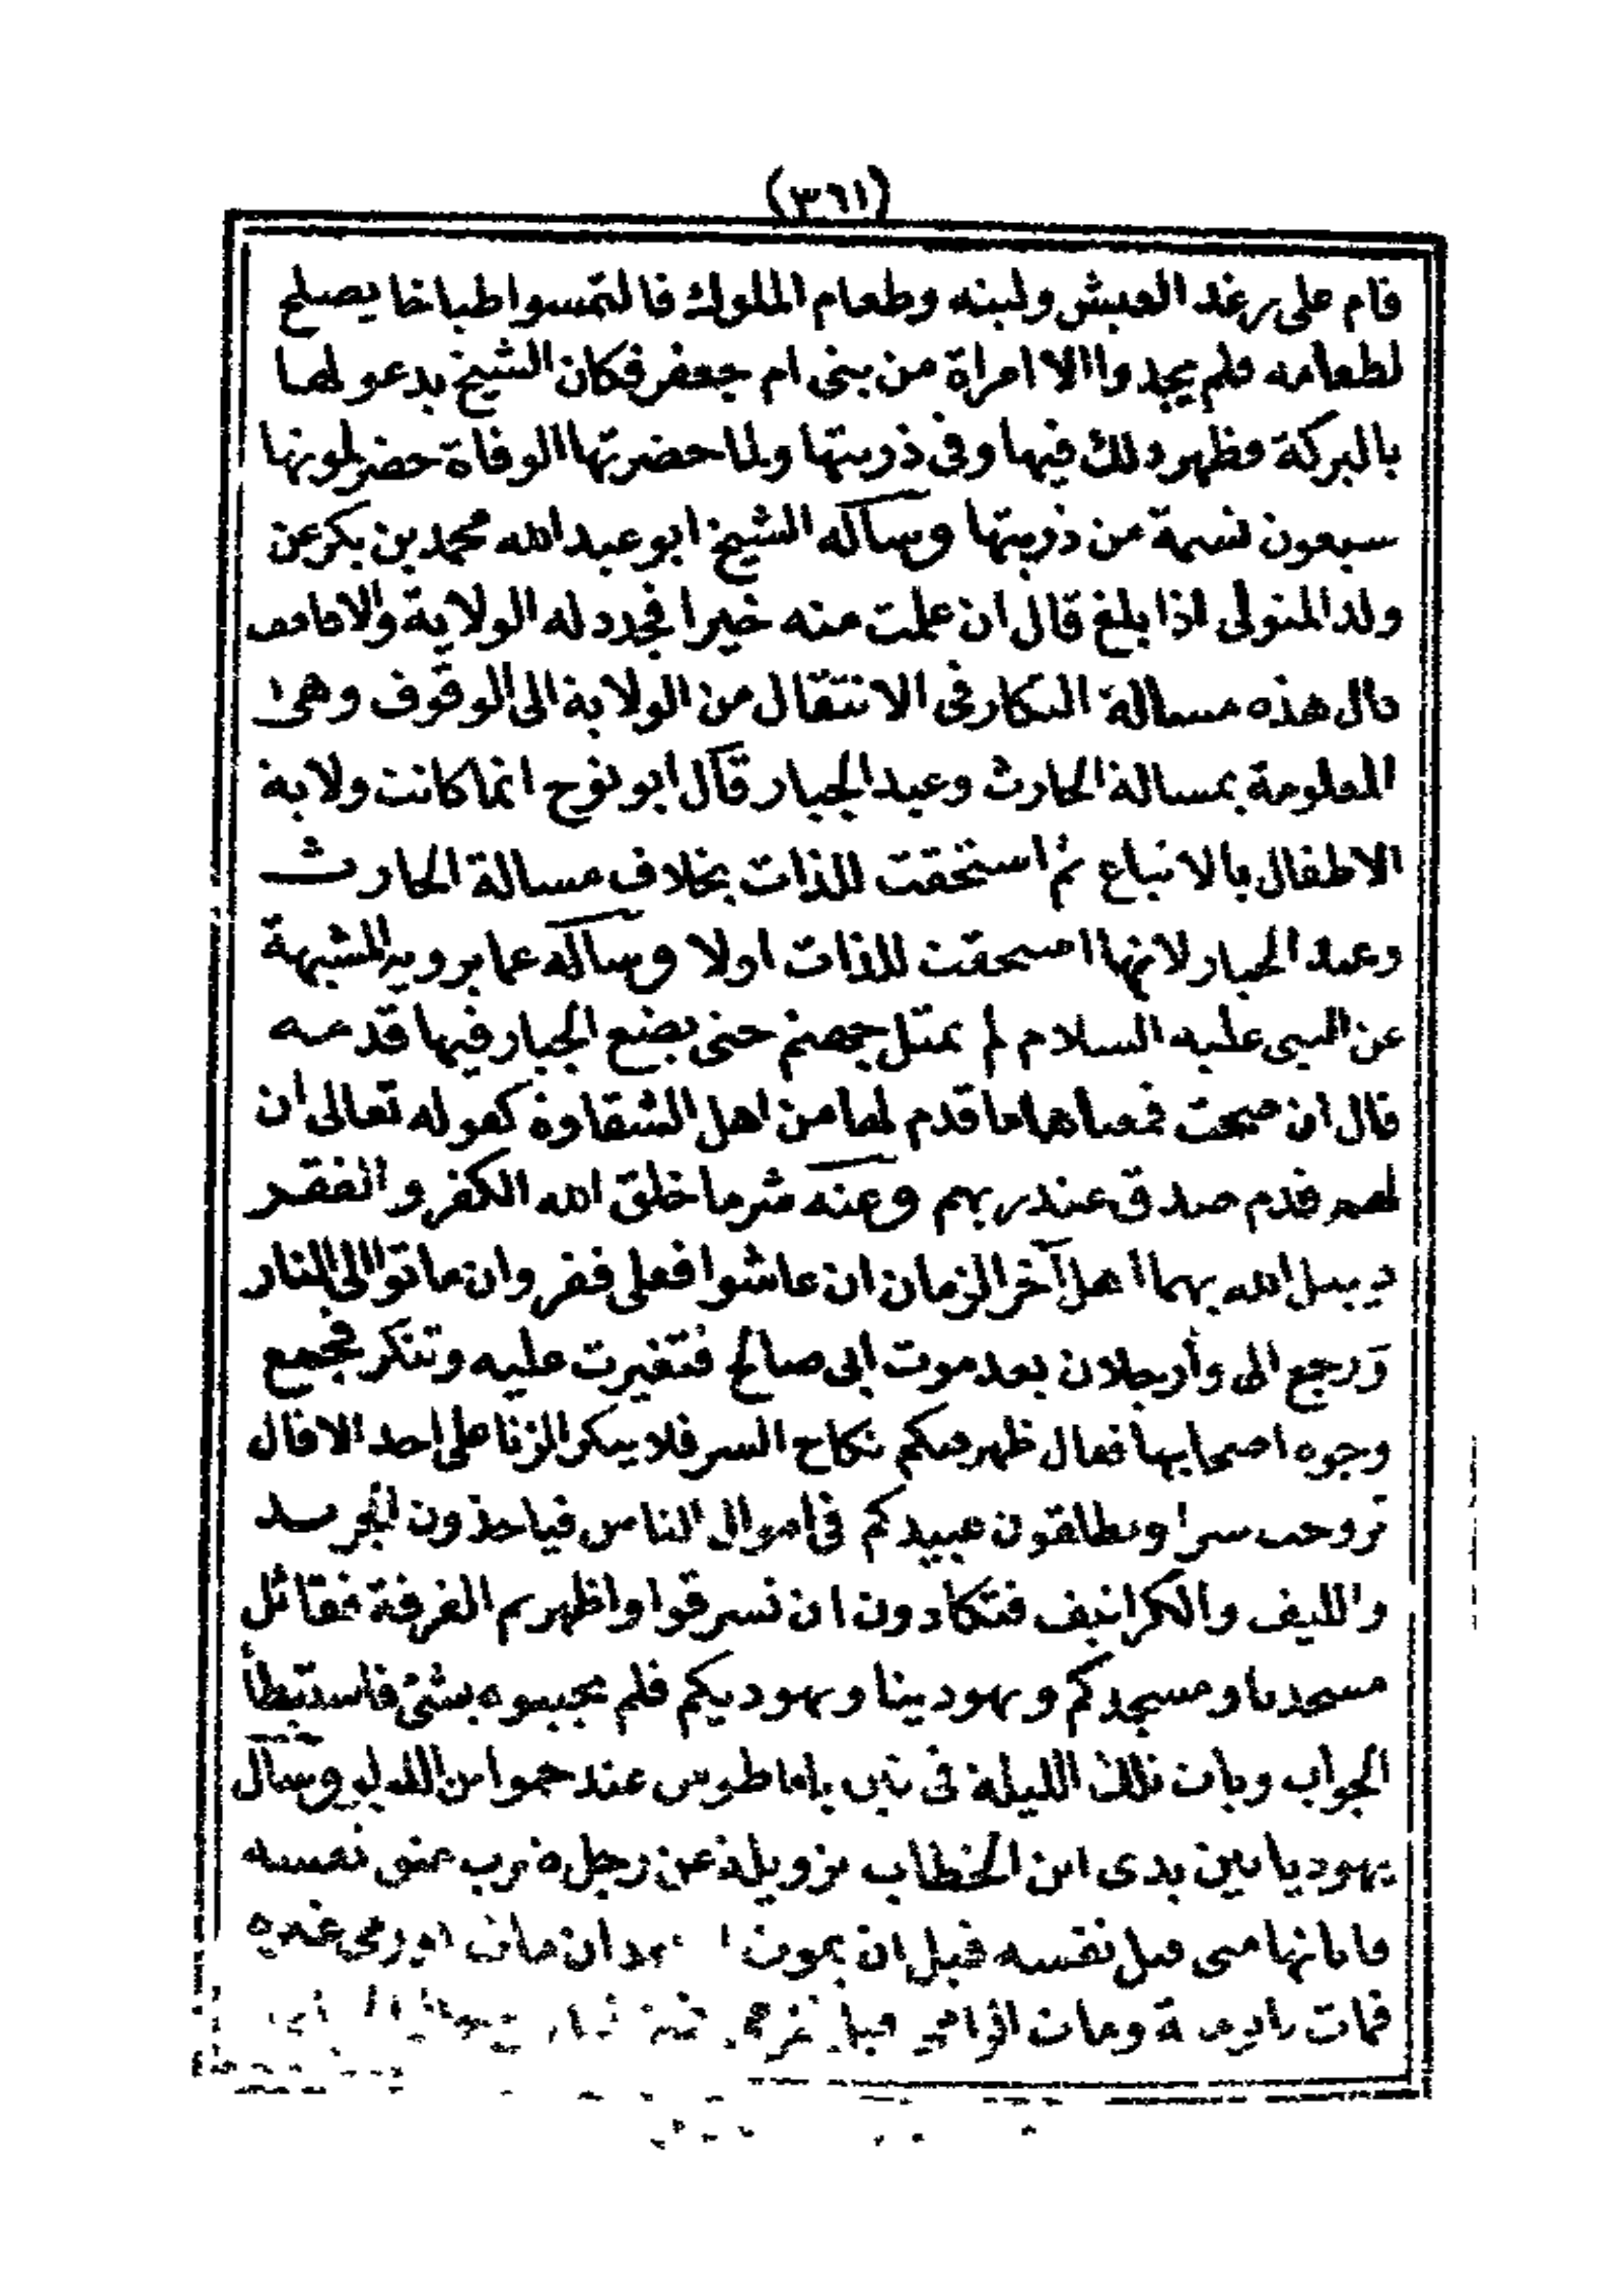 (٣٦١)
قام على رغد العيش ولينه وطعام الملوك فالتمسوا طباخا يصلح
لطعامه فلم يجدوا الا امراة من بنى ام جعفر فكان الشيخ يدعو لها
بالبركة فظهر ذلك فيها وفى ذريتها ولما حضرتها الوفاة حضر لموتها
سبعون نسمة من ذريتها وسأله الشيخ ابو عبد الله محمد بن بكر عن
ولد المتولى اذا بلغ قال ان علمت منه خيرا فجدد له الولاية والا فامسك
قال هذه مسالة النكار فى الانتقال من الولاية الى الوقوف وهى
المعلومة بمسالة الحارث وعبد الجبار قال ابو نوح انما كانت ولاية
الاطفال بالاتباع ثم استحقت للذات بخلاف مسالة الحارث
وعبد الجبار لانها استحقت للذات اولا وسأله عما يرويه المشبهة
عن النبى عليه السلام لم تمتل جهنم حتى يضع الجبار فيها قدمه
قال ان صحت فمعناها ما قدم لها من اهل الشقاوة كقوله تعالى ان
لهم قدم صدق عند ربهم وعنه شر ما خلق الله الكفر والفقر
يبسل الله بهما اهل آخر الزمان ان عاشوا فعلى فقر وان ماتوا الى النار
ورجع الى وأرجلان بعد موت ابى صالح فتغيرت عليه وتنكر فجمع
وجوه اصحابها فقال ظهر فيكم نكاح السر فلا ينكر الزنا على احد الا قال
تزوجت سرا وتطلقون عبيدكم فى اموال الناس فياخذون الجريد
والليف والكرانيف فتكادون ان تسرقوا واظهرتم الفرقة فقائل
مسجدنا ومسجدكم ويهودينا ويهوديكم فلم يجيبوه بشئ فاستبطأ
الجواب وبات تلك الليلة فى تين باماطوس عند حمو ابن اللؤلؤ وسأل
يهوديا بين يدى ابن الخطاب بزويلة عن رجل ضرب عنق نفسه
فابانها متى قتل نفسه قبل ان يموت ا بعد ان مات اورمى غيره
فمات ومات الرامى